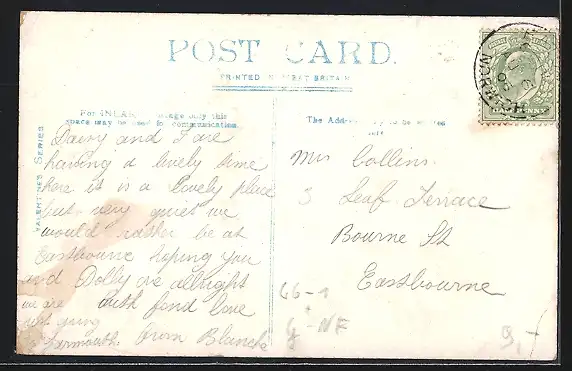 POST CARD.
PRINTED IN GREAT BRITAIN
For INLAND Postage only this
space may be used for communication.
The Address only to be written
here
VALENTINES SERIES
Daisy and I are
having a lovely time
here it is a lovely place
but very quiet we
would rather be at
Eastbourne hoping you
and Dolly are allright
we are with fond love
not going
Yarmouth. from Blanche
Mrs Collins
5 Leaf Terrace
Bourne St
Eastbourne
66-1